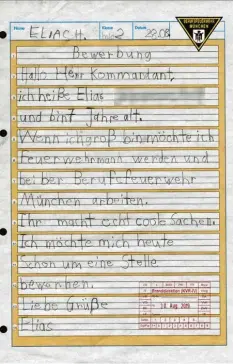 Name ELIAS H. Klasse 2 Datum 28.08.
BERUFSFEUERWEHR
MÜNCHEN
Bewerbung
Hallo Herr Kommandant,
ich heiße Elias
und bin 7 Jahre alt.
Wenn ich groß bin möchte ich
Feuerwehrmann werden und
bei ber Berufsfeuerwehr
München arbeiten.
Ihr macht echt coole Sachen.
Ich möchte mich heute
schon um eine Stelle
bewerben.
Liebe Grüße
Elias
Branddirektion (KVR-IV)
Aug. 2019